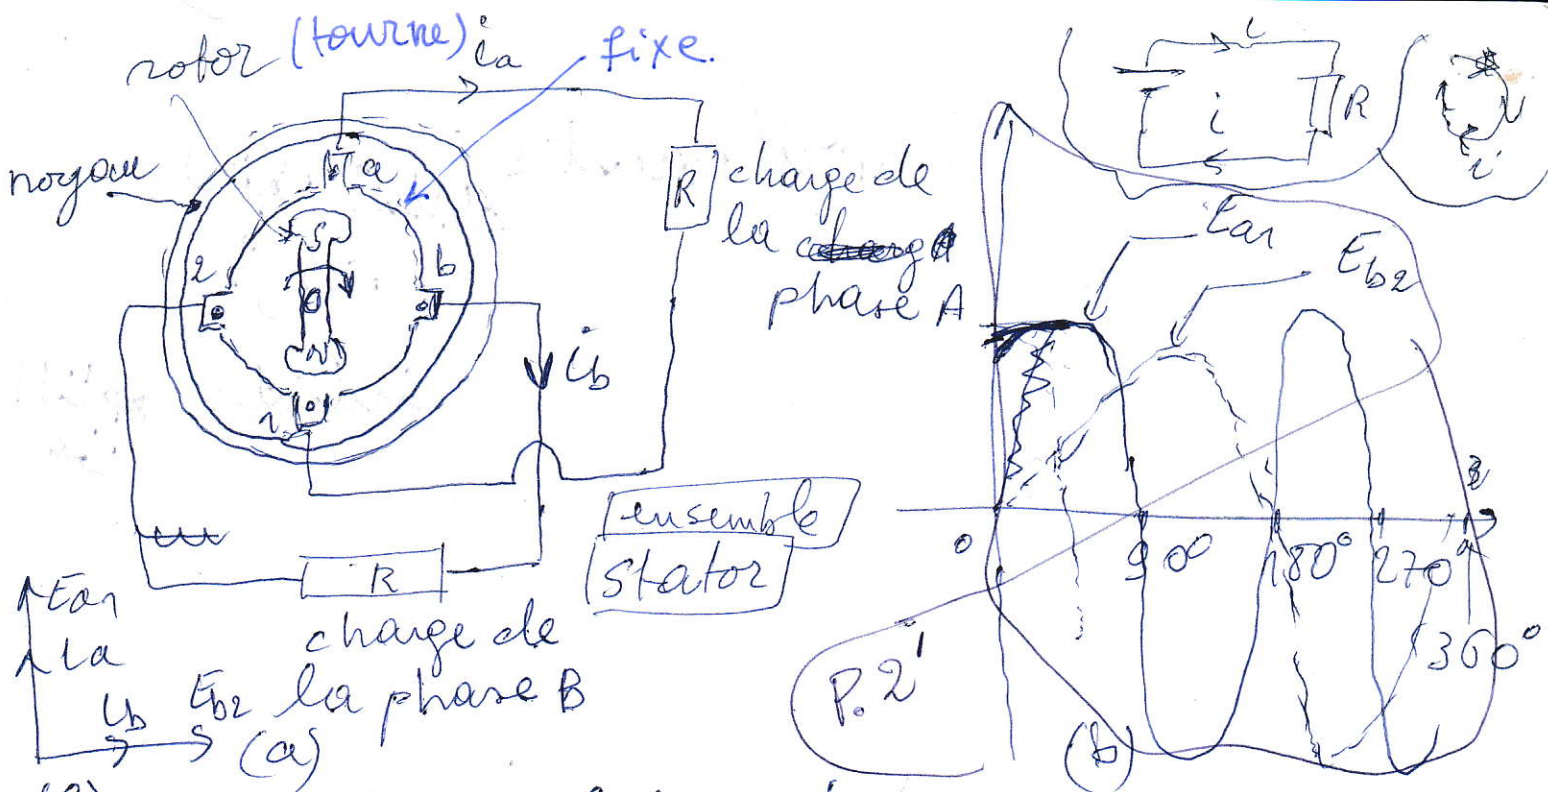 rotor (tourne) ia fixe.
noyau
a
S
2
b
O
N
1
ib
R
charge de
la
phase A
ensemble
stator
R
charge de
la phase B
Ea1
ia
ib
Eb2
(a)
i
i
R
i
Ea1
Eb2
0
90°
180°
270°
360°
P. 2'
(b)